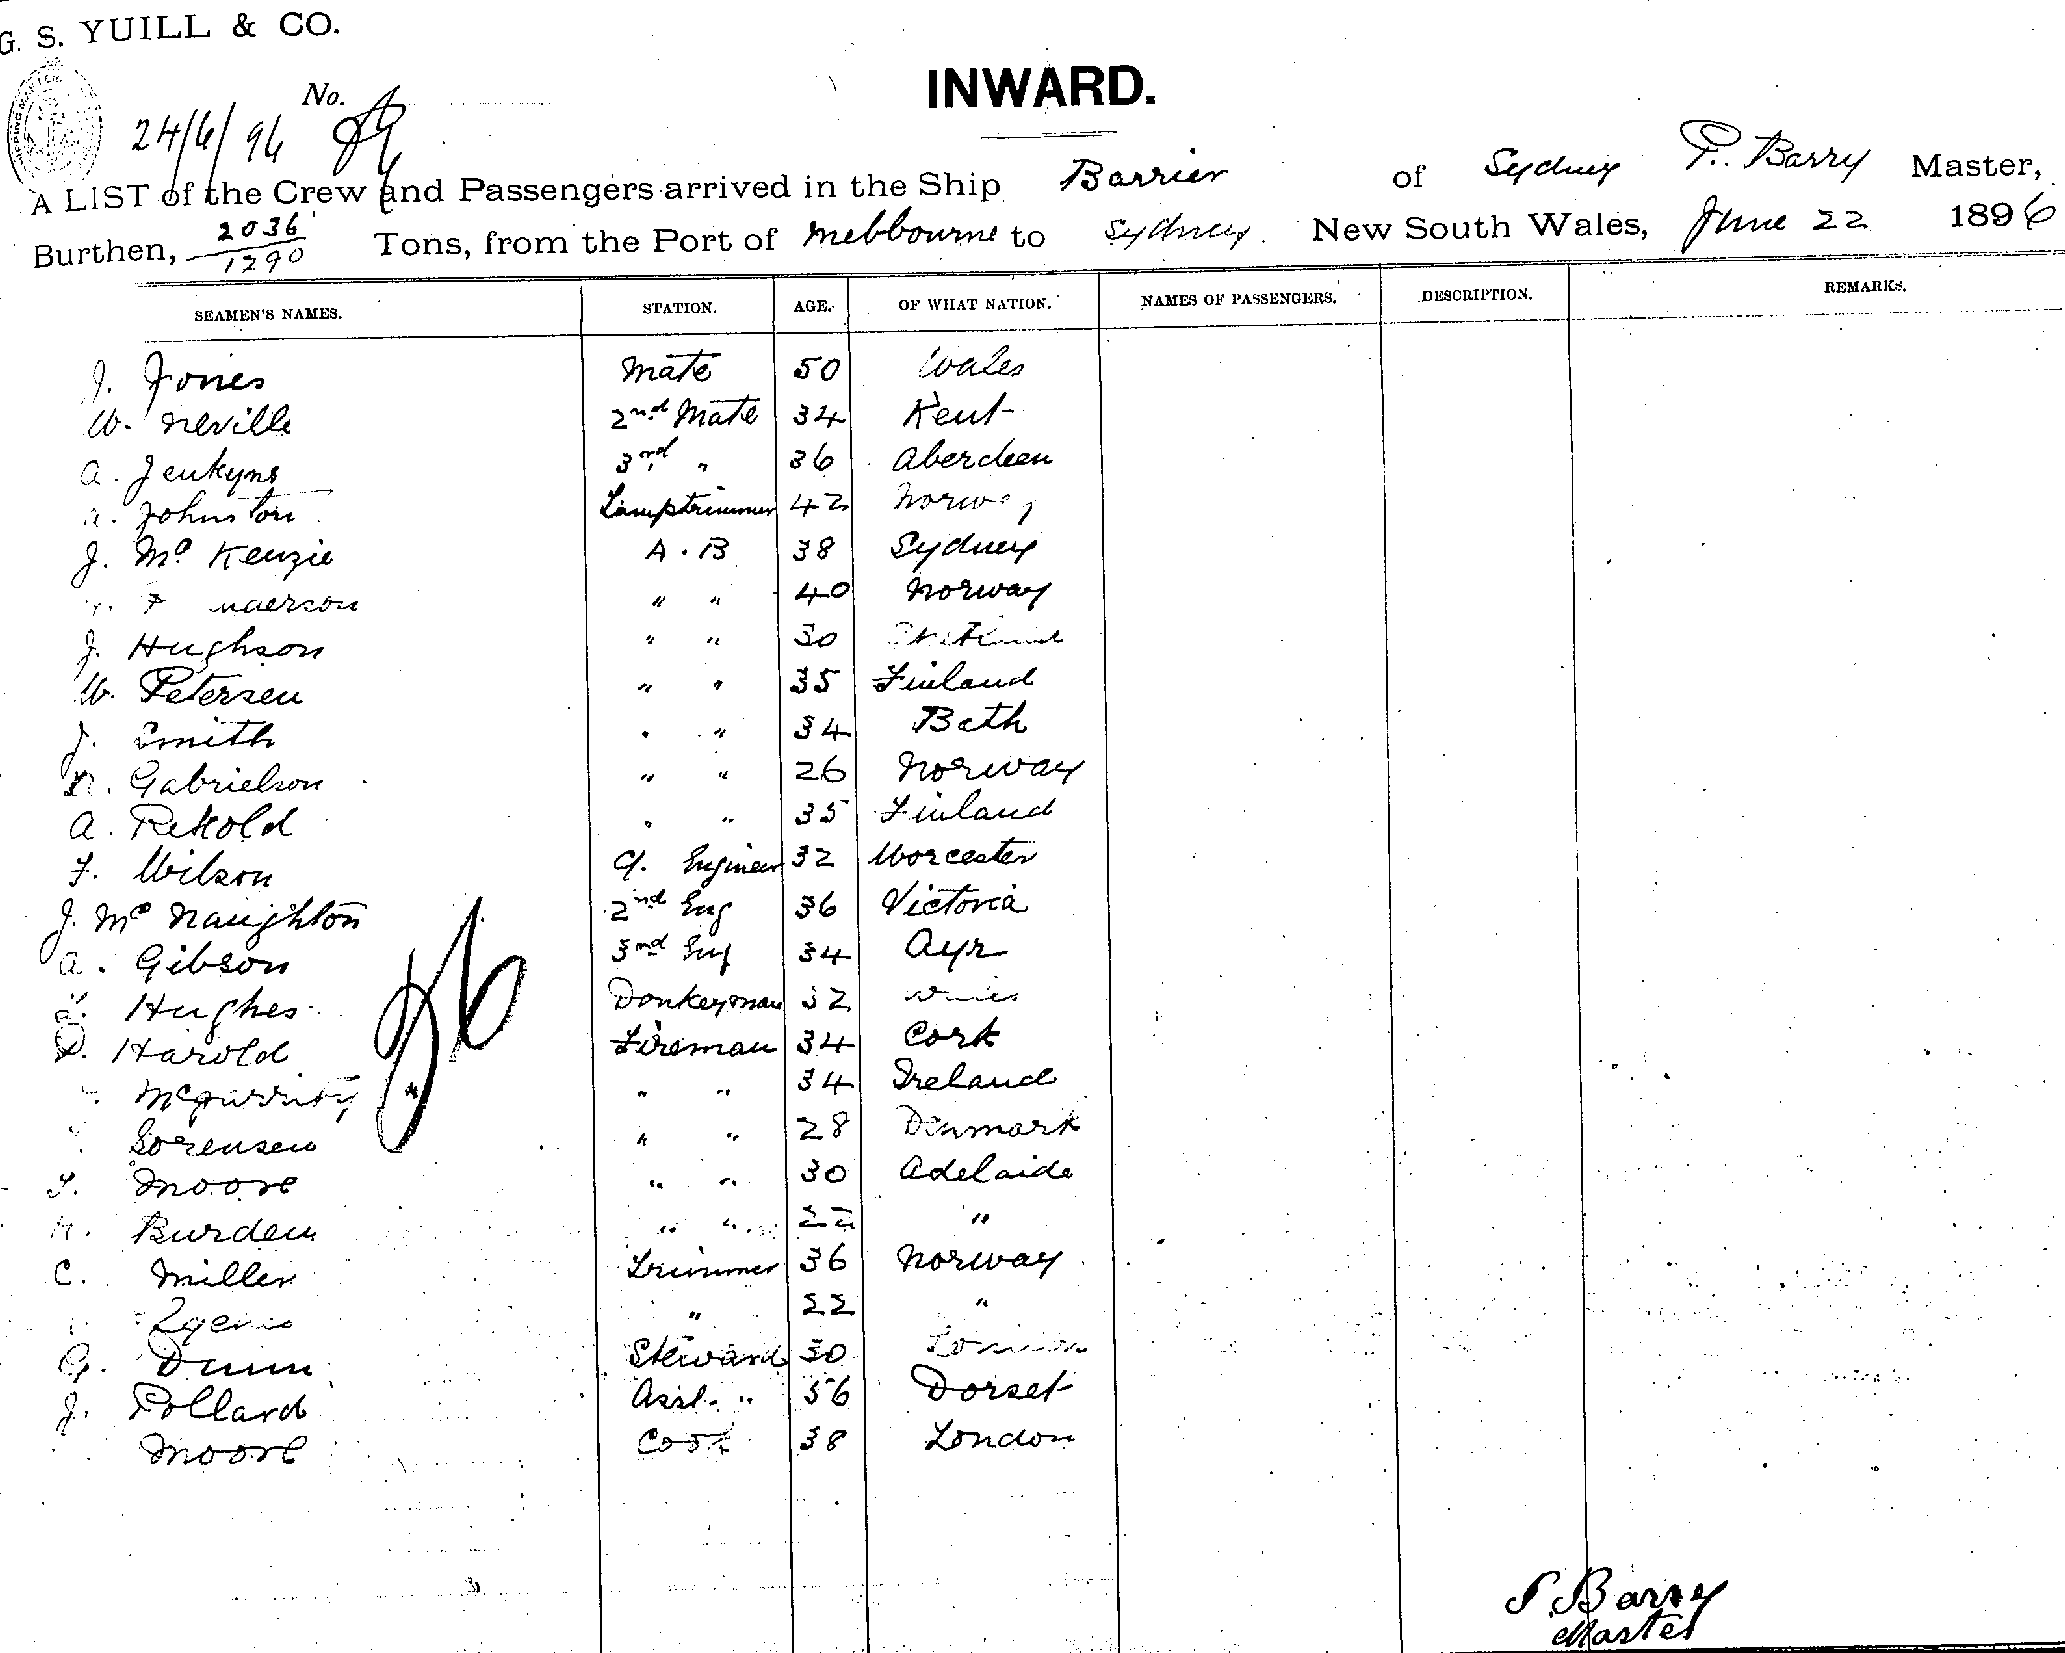 G. S. YUILL & CO.
INWARD.
No.
24/6/96
A LIST of the Crew and Passengers arrived in the Ship Barrier of Sydney P. Barry Master,
Burthen, 2036/1290 Tons, from the Port of Melbourne to Sydney New South Wales, June 22 1896
SEAMEN'S NAMES. STATION. AGE. OF WHAT NATION. NAMES OF PASSENGERS. DESCRIPTION. REMARKS.
J. Jones Mate 50 Wales
W. Neville 2nd Mate 34 Kent
A. Jenkyns 3rd " 36 Aberdeen
A. Johnston Lamptrimmer 42 Norway
J. Mc Kenzie A.B 38 Sydney
" " 40 Norway
J. Hughson " " 30
W. Petersen " " 35 Finland
J. Smith " " 34 Bath
N. Gabrielson " " 26 Norway
A. Rekold " " 35 Finland
F. Wilson C. Engineer 32 Worcester
J. Mc Naughton 2nd Eng 36 Victoria
A. Gibson 3rd Eng 34 Ayr
Hughes Donkeyman 32
D. Harold Fireman 34 Cork
McGurrity " " 34 Ireland
Sorensen " " 28 Denmark
F. Moore " " 30 Adelaide
H. Burden " " 22 "
C. Miller Trimmer 36 Norway
" 22 "
G. Dunn Steward 30 London
J. Pollard Asst. " 56 Dorset
Moore Cook 38 London
P. Barry
Master